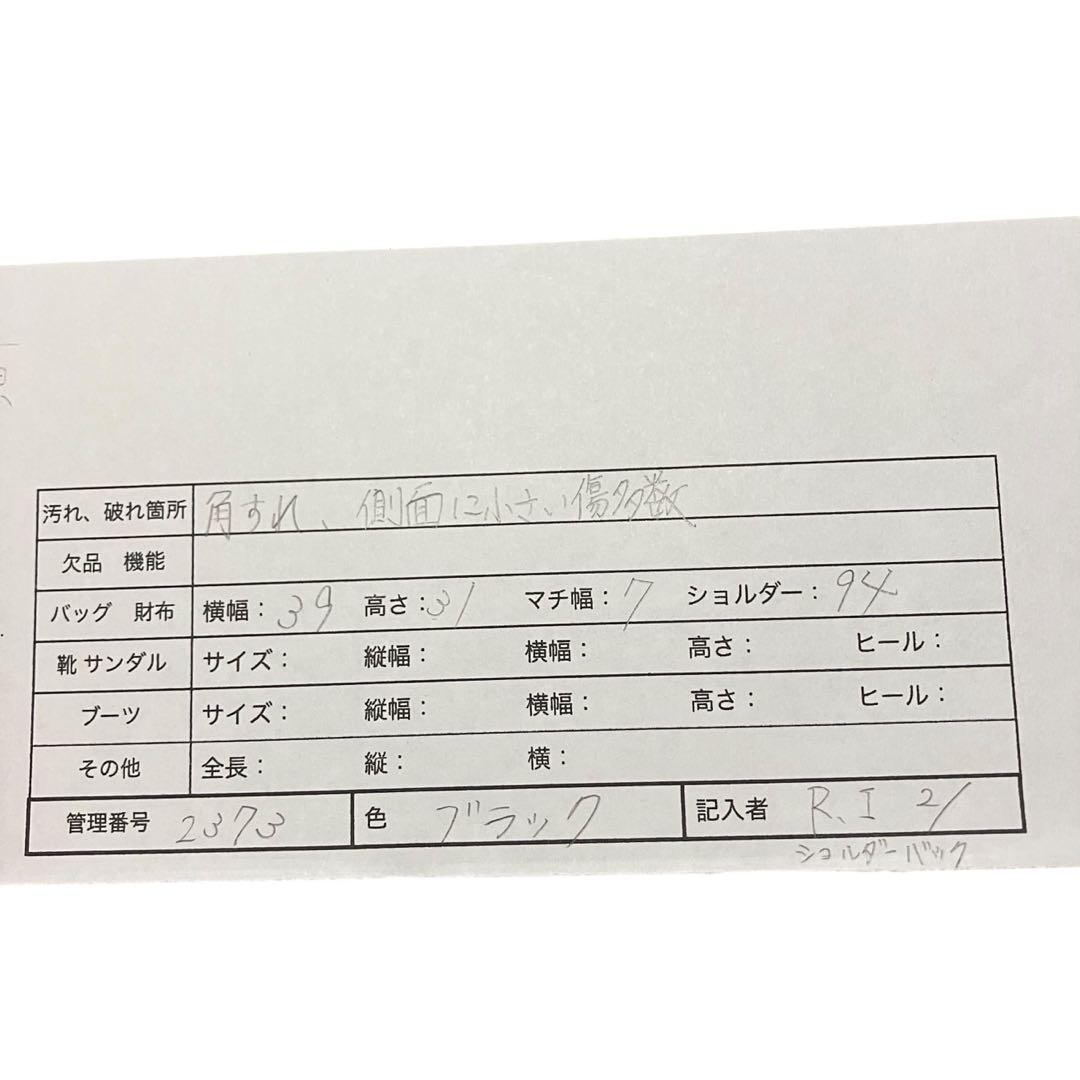 汚れ、破れ箇所 角すれ、側面に小さい傷多数
欠品 機能
バッグ 財布 横幅：39 高さ：31 マチ幅：7 ショルダー：94
靴 サンダル サイズ： 縦幅： 横幅： 高さ： ヒール：
ブーツ サイズ： 縦幅： 横幅： 高さ： ヒール：
その他 全長： 縦： 横：
管理番号 2373 色 ブラック 記入者 R.I 21
ショルダーバック